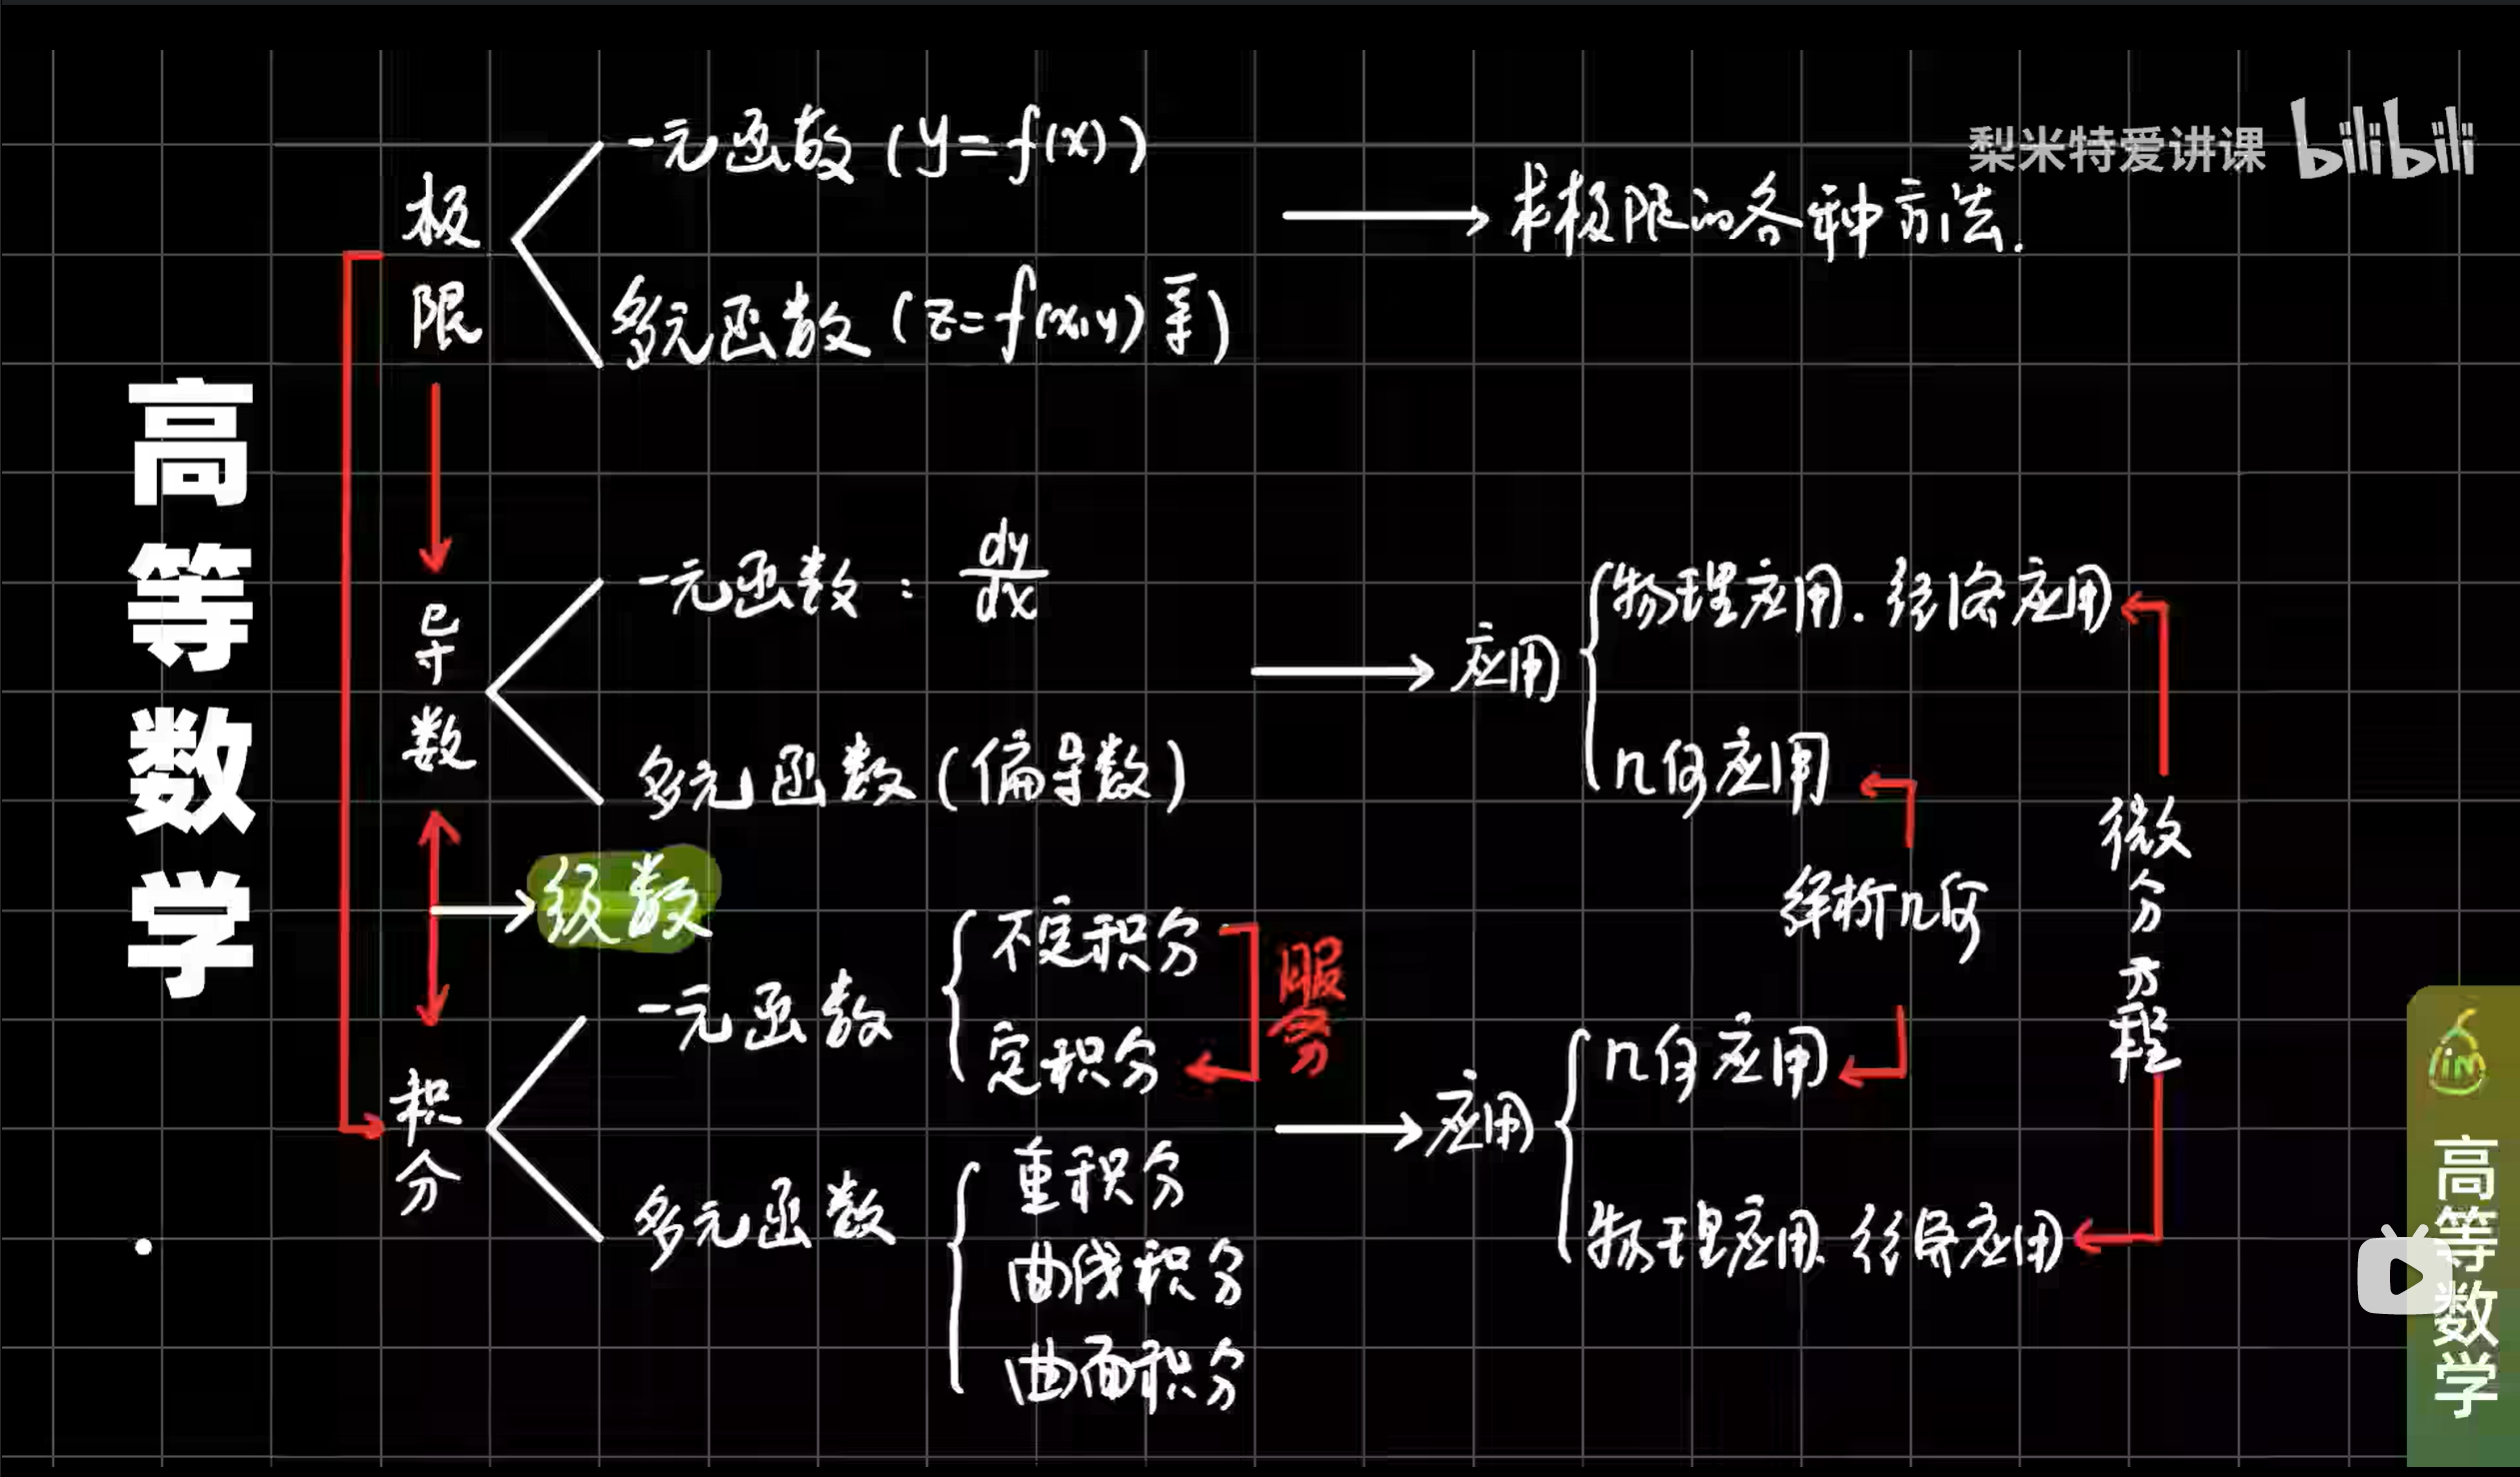 梨米特爱讲课 bilibili
高等数学
极限
一元函数 (y=f(x))
多元函数 (z=f(x,y)等)
求极限的各种方法.
导数
一元函数: dy/dx
多元函数 (偏导数)
应用
物理应用. 经济应用
几何应用
级数
解析几何
微分方程
积分
一元函数
不定积分
定积分
服务
多元函数
重积分
曲线积分
曲面积分
应用
几何应用
物理应用. 经济应用
lim
高等数学